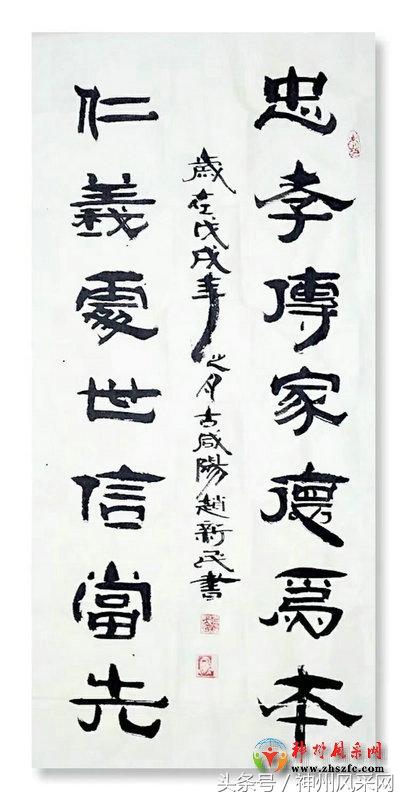 忠孝傳家德爲本
歲在戊戌年之月古咸陽趙新民書
仁義處世信當先
神州风采网
www.zhszfc.com
头条号/神州风采网